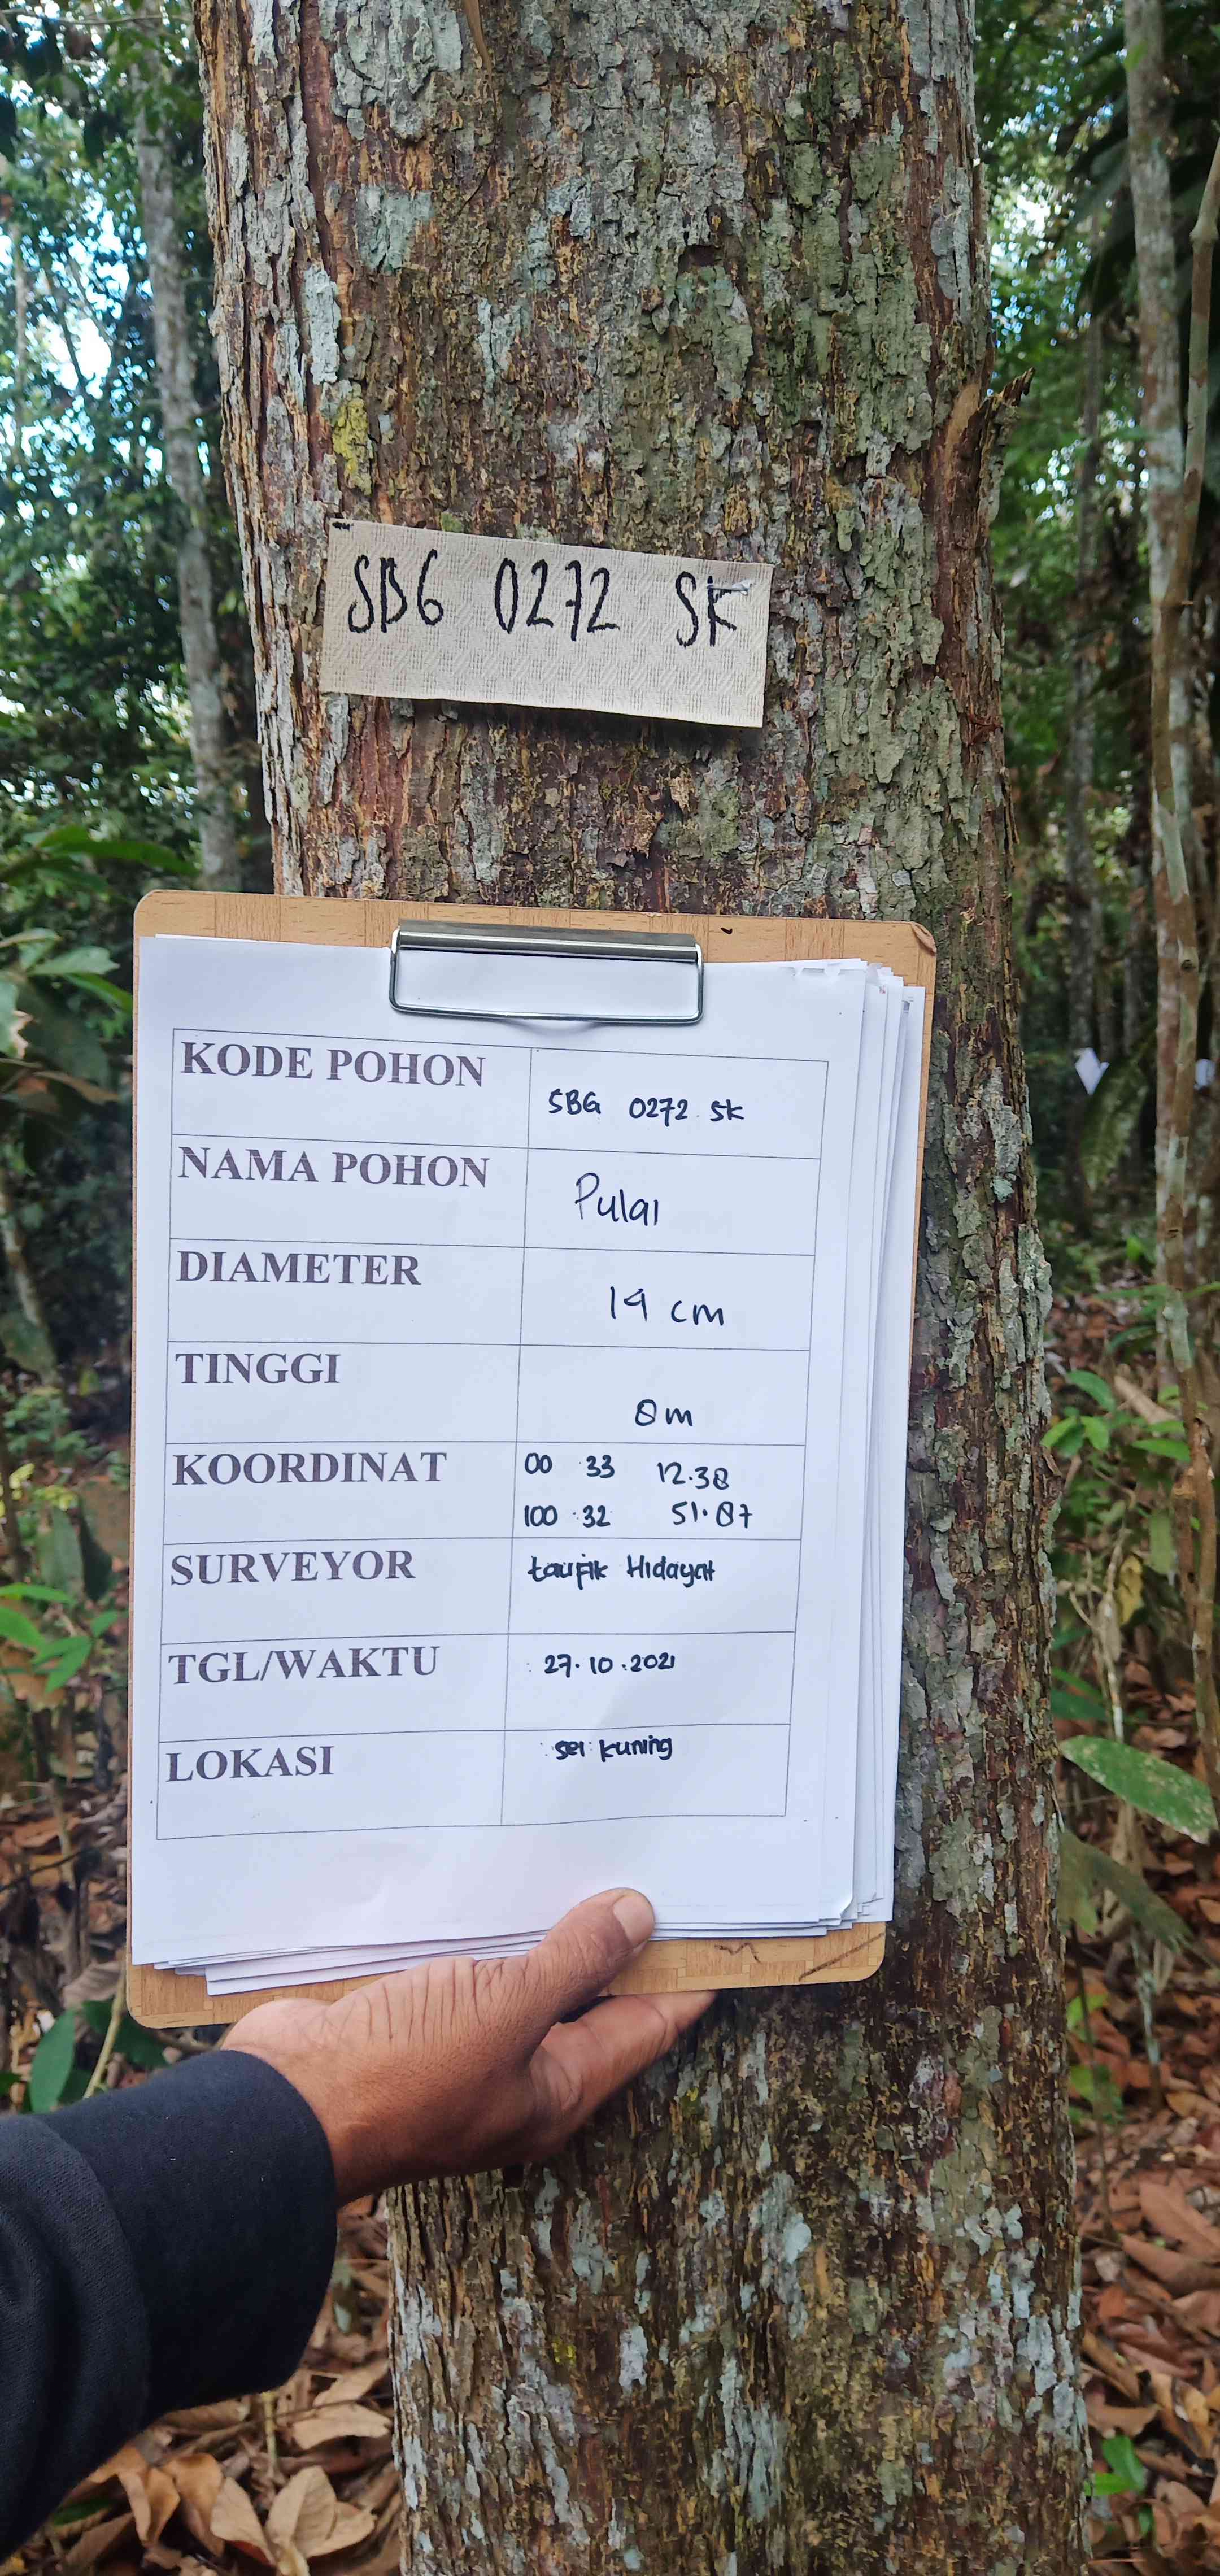 SBG 0272 SK
KODE POHON
SBG 0272 SK
NAMA POHON
Pulai
DIAMETER
19 cm
TINGGI
8 m
KOORDINAT
00 33 12.38
100 32 51.87
SURVEYOR
taufik Hidayat
TGL/WAKTU
: 27.10.2021
LOKASI
: sei kuning